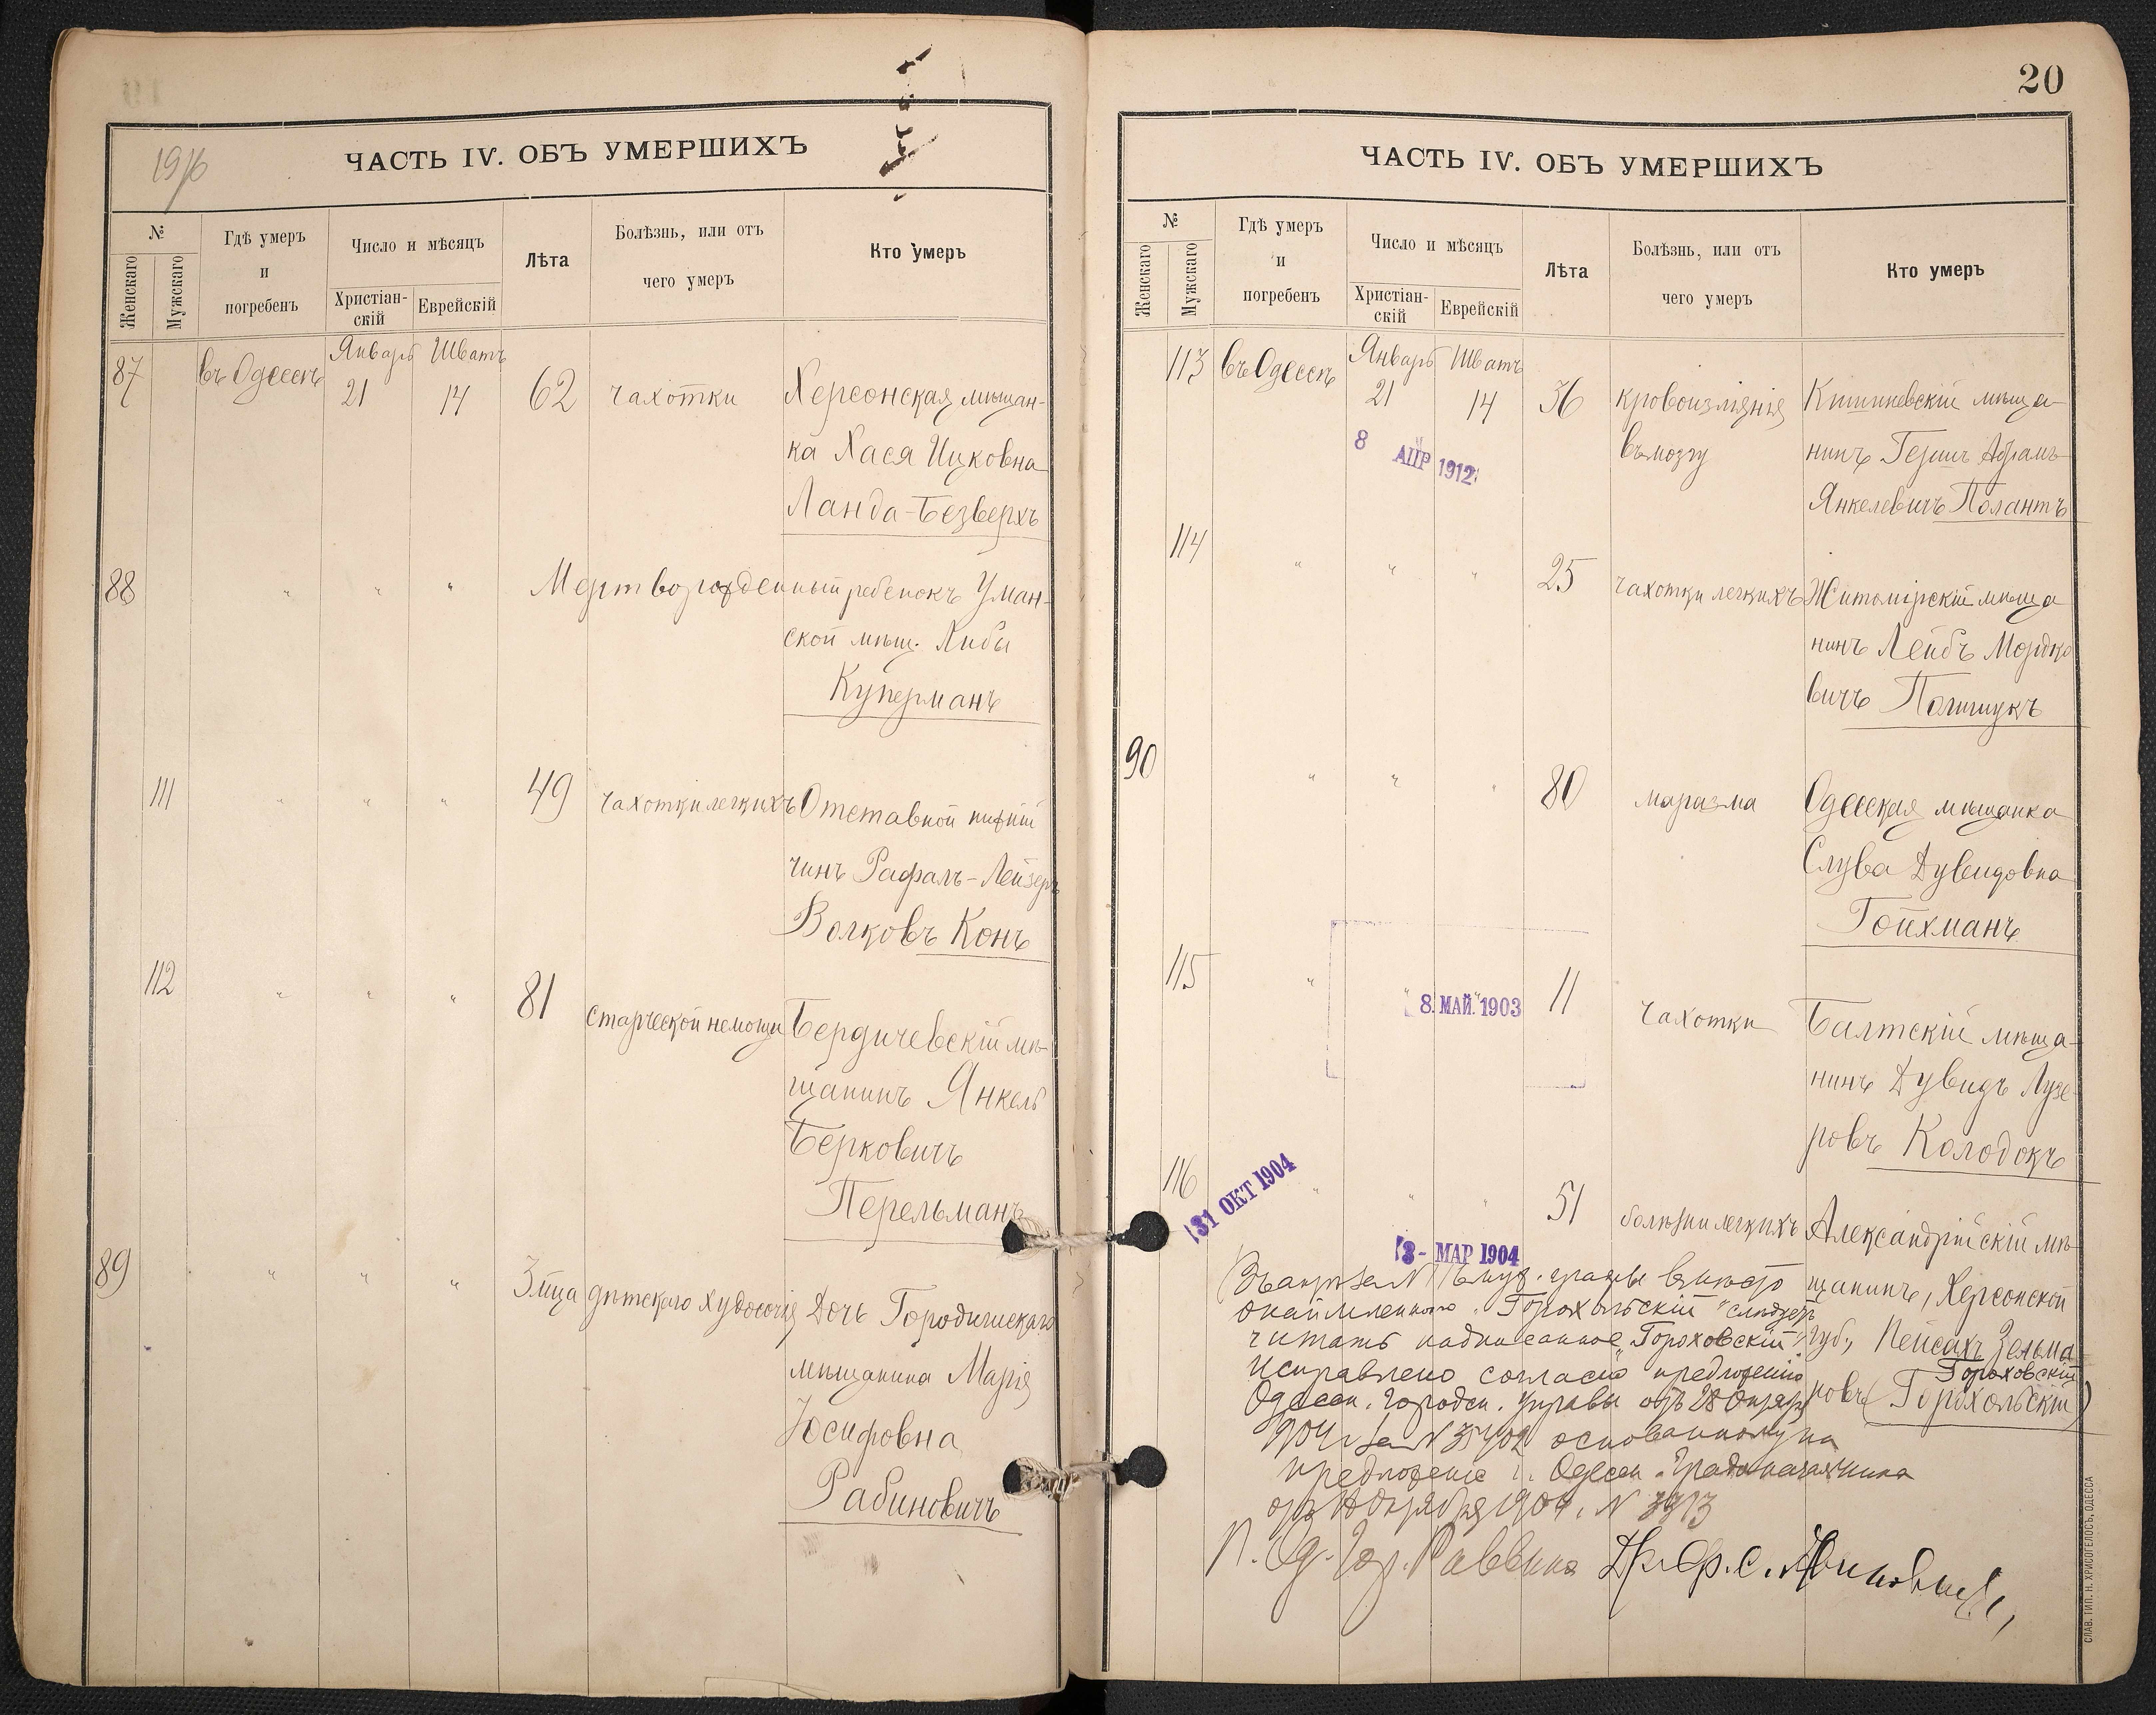 19 1/6
ЧАСТЬ IV. ОБЪ УМЕРШИХЪ
№
Женскаго
Мужскаго
Гдѣ умеръ
и
погребенъ
Число и мѣсяцъ
Христіан-
скій
Еврейскій
Лѣта
Болѣзнь, или отъ
чего умеръ
Кто умеръ
87
въ Одессѣ
Январь Шватъ
21 14
62
чахотки
Херсонская мѣщан-
ка Хася Ицковна
Ланда-Безверхъ
88
" " "
Мертворожденный ребенокъ Уман-
ской мѣщ. Либы
Куперманъ
111
" " "
49
чахотки легкихъ
Отставной нижній
чинъ Рафалъ-Лейзеръ
Волковъ Конъ
112
" " "
81
старческой немощи
Бердичевскій мѣ-
щанинъ Янкель
Берковичъ
Перельманъ
89
" " "
3 мца
дѣтскаго худосочія
Дочь Городищскаго
мѣщанина Марія
Юсифовна
Рабиновичъ
20
ЧАСТЬ IV. ОБЪ УМЕРШИХЪ
№
Женскаго
Мужскаго
Гдѣ умеръ
и
погребенъ
Число и мѣсяцъ
Христіан-
скій
Еврейскій
Лѣта
Болѣзнь, или отъ
чего умеръ
Кто умеръ
113
въ Одессѣ
Январь Шватъ
21 14
36
кровоизліянія
въ мозгу
Кишиневскій мѣща-
нинъ Гершъ Абрамъ
Янкелевичъ Полантъ
8 АПР 1912
114
" " "
25
чахотки легкихъ
Житомірскій мѣща
нинъ Лейбъ Мордко
вичъ Полищукъ
90
" " "
80
маразма
Одесская мѣщанка
Слува Дувидовна
Гойхманъ
115
" " "
8. МАЙ. 1903
11
чахотки
Балтскій мѣща-
нинъ Дувидъ Лузе-
ровъ Колодокъ
116
31 ОКТ 1904
" " "
3 - МАР 1904
51
болѣзни легкихъ
Александрійскій мѣ-
щанинъ, Херсонской
губ., Пейсахъ Зельма
Гороховскій
новъ (Горохольскій)
Въ актѣ за № 116 муж. графы вмѣсто
окаймленнаго "Горохольскій" слѣдуетъ
читать надписанное "Гороховскій".
Исправлено согласно предложенію
Одесск. Городск. Управы отъ 28 Октября
1904 г. за № 35402 основанному на
предложеніе г. Одесск. Градоначальника
отъ Октября 1904 г. №
П. Од. Гор. Раввина
СЛАВ. ТИП. Н. ХРИСОГЕЛОСЪ, ОДЕССА